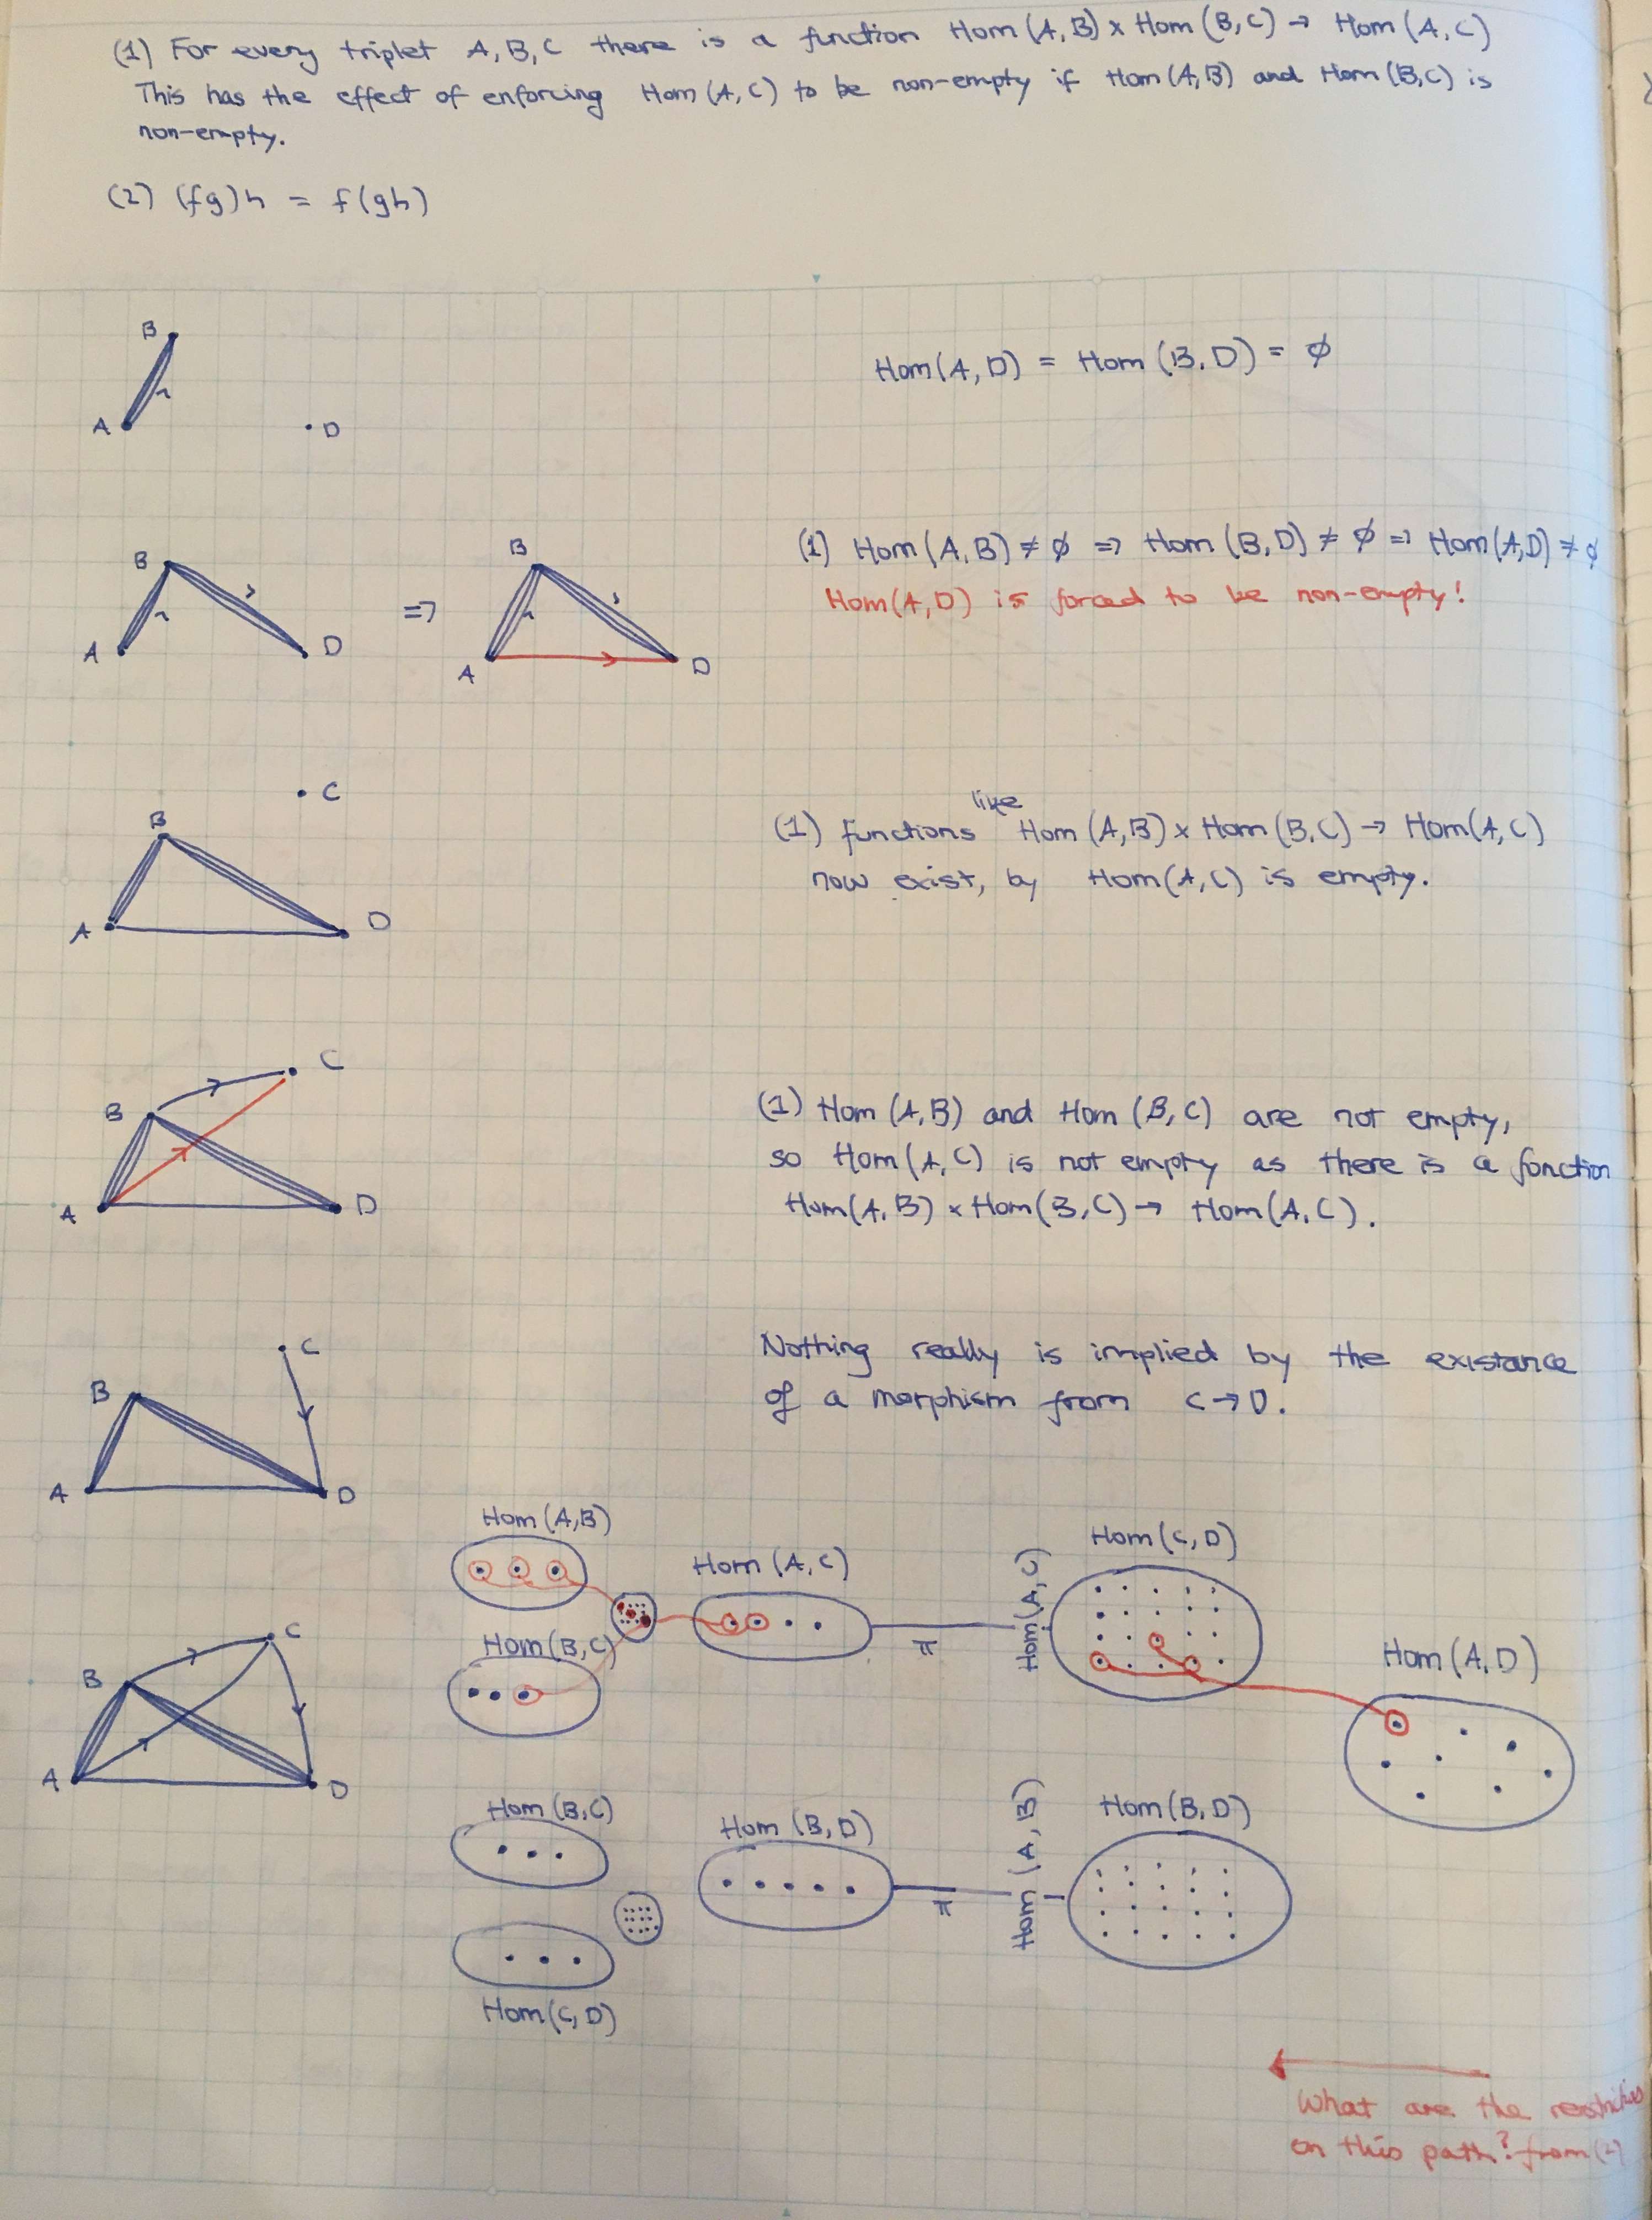 (1) For every triplet A, B, C there is a function Hom(A,B) × Hom(B,C) → Hom(A,C)
This has the effect of enforcing Hom(A,C) to be non-empty if Hom(A,B) and Hom(B,C) is
non-empty.
(2) (fg)h = f(gh)
B
A
D
Hom(A,D) = Hom(B,D) = ∅
B
A
D
⇒
B
A
D
(1) Hom(A,B) ≠ ∅ ⇒ Hom(B,D) ≠ ∅ ⇒ Hom(A,D) ≠ ∅
Hom(A,D) is forced to be non-empty!
C
B
A
D
like
(1) functions Hom(A,B) × Hom(B,C) → Hom(A,C)
now exist, by Hom(A,C) is empty.
C
B
A
D
(1) Hom(A,B) and Hom(B,C) are not empty,
so Hom(A,C) is not empty as there is a fonction
Hom(A,B) × Hom(B,C) → Hom(A,C).
C
B
A
D
Nothing really is implied by the existance
of a morphism from C→D.
Hom(A,B)
Hom(B,C)
Hom(A,C)
π
Hom(A,C)
Hom(C,D)
Hom(A,D)
C
B
A
D
Hom(B,C)
Hom(C,D)
Hom(B,D)
π
Hom(A,B)
Hom(B,D)
What are the
on this path? from (2)